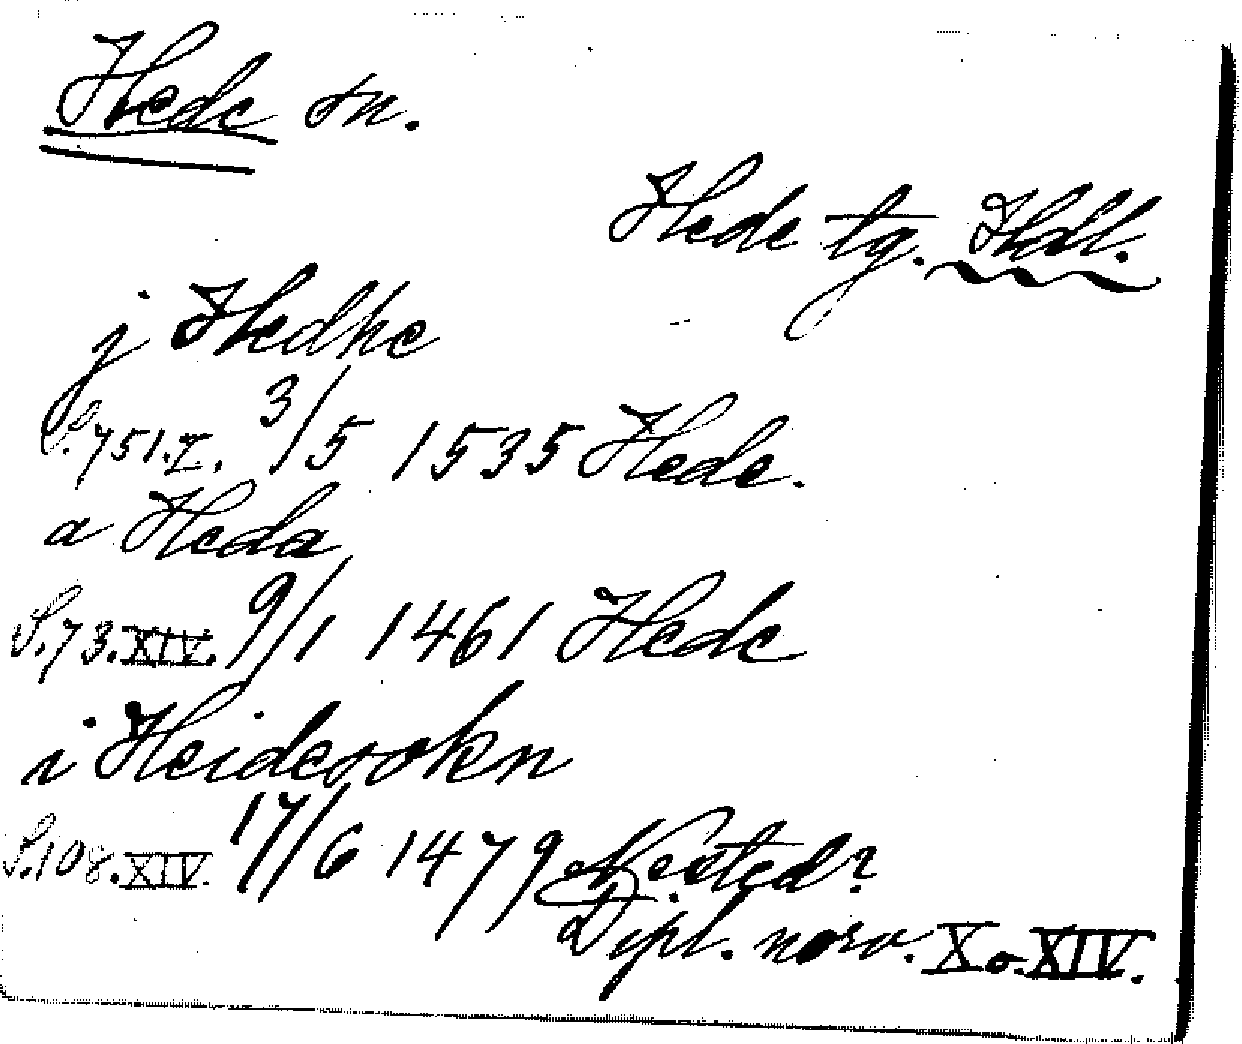 Hede sn.
Hede tg. Hdl.
j Hedhe
S. 751. X. 3/5 1535 Hede.
a Heda
S. 73. XIV. 9/1 1461 Hede
i Heidesokn
S. 108. XIV. 17/6 1479 Nested?
Dipl. norv. X o. XIV.